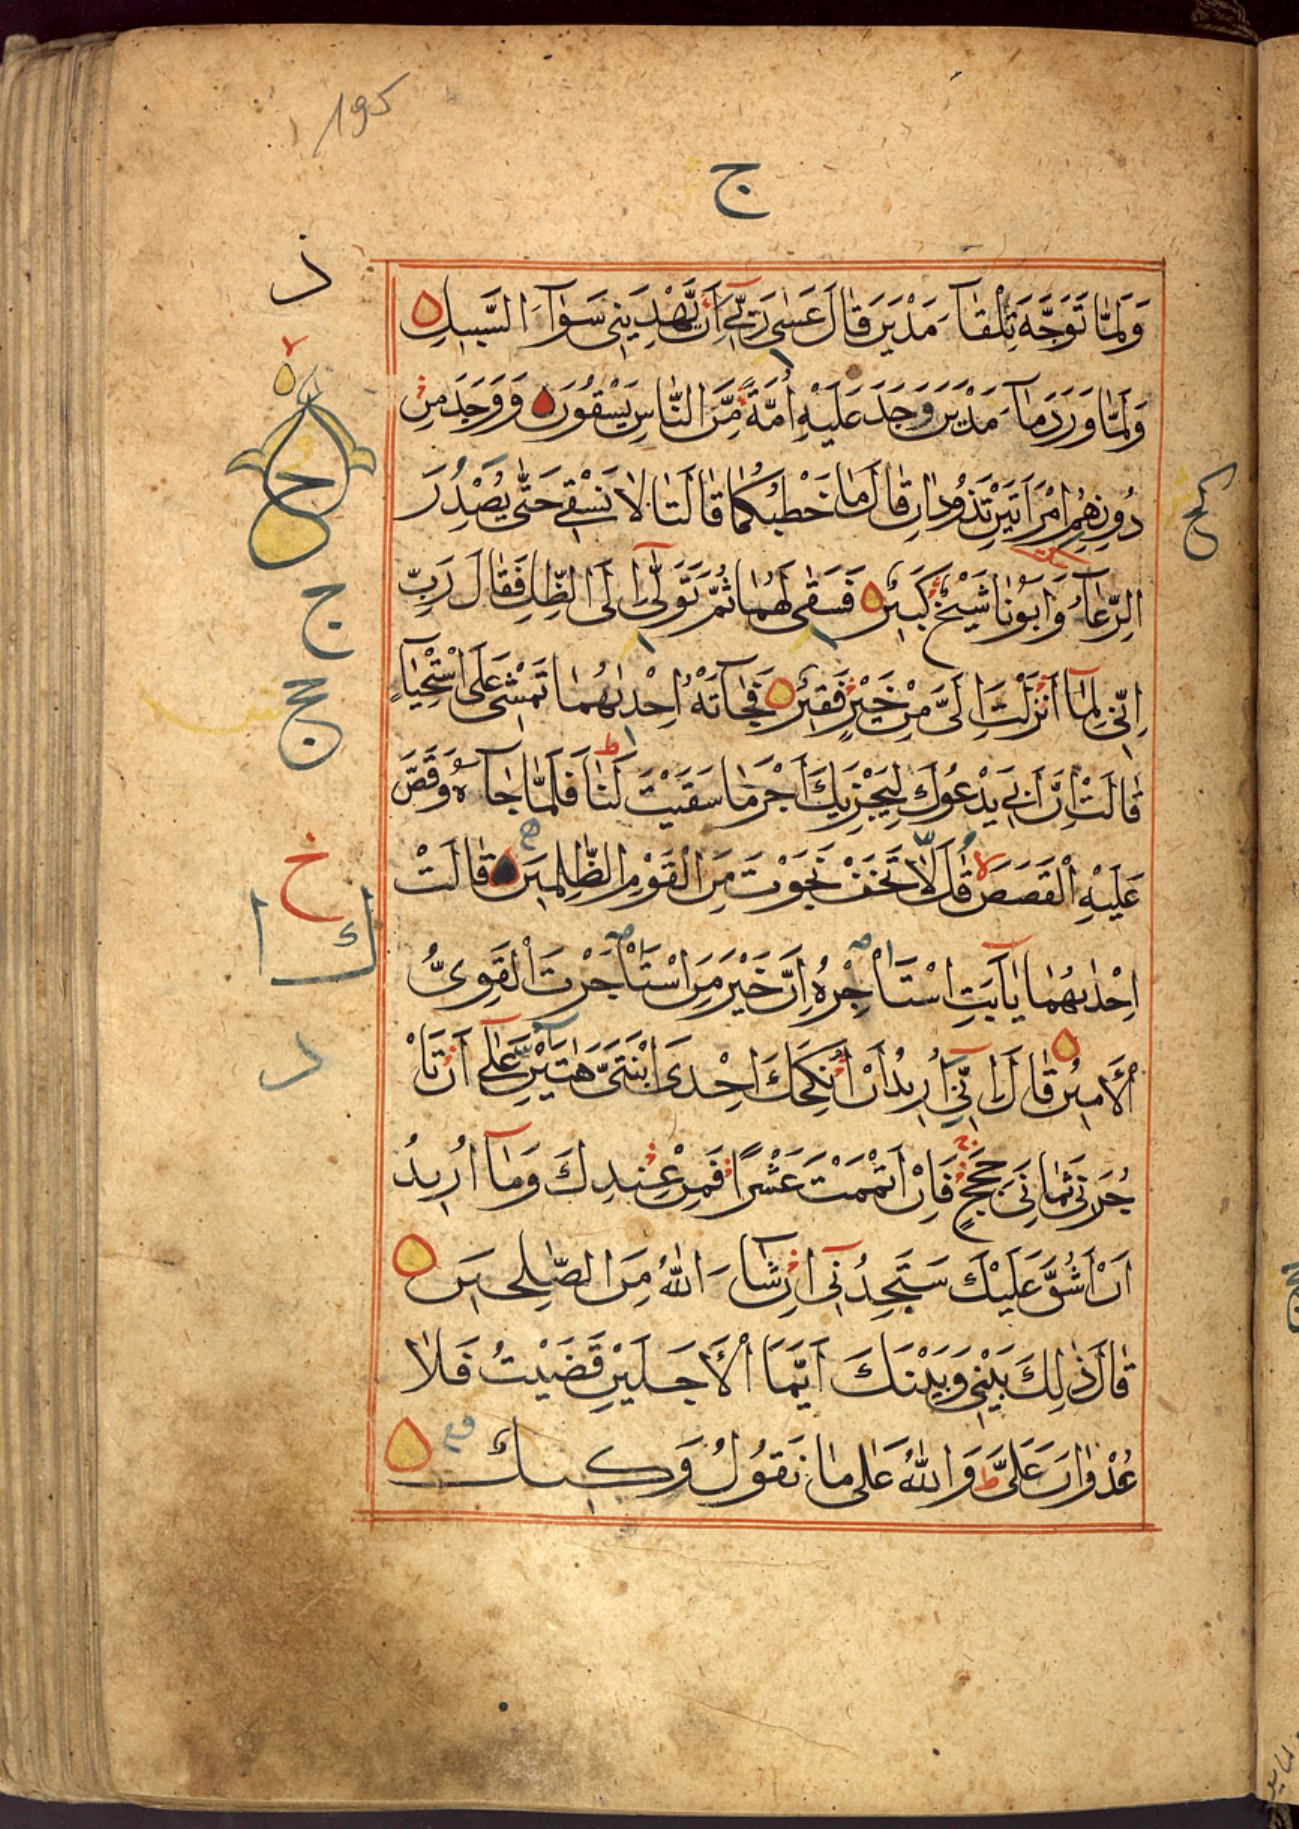 195
ج
ذ
وَلَمَّا تَوَجَّهَ تِلْقَآءَ مَدْيَنَ قَالَ عَسٰى رَبِّىٓ اَنْ يَّهْدِيَنِى سَوَآءَ السَّبِيلِ
وَلَمَّا وَرَدَ مَآءَ مَدْيَنَ وَجَدَ عَلَيْهِ اُمَّةً مِّنَ النَّاسِ يَسْقُونَ وَوَجَدَ مِنْ
دُونِهِمُ امْرَاَتَيْنِ تَذُودَانِ قَالَ مَا خَطْبُكُمَا قَالَتَا لَا نَسْقِى حَتّٰى يُصْدِرَ
الرِّعَآءُ وَاَبُونَا شَيْخٌ كَبِيرٌ فَسَقٰى لَهُمَا ثُمَّ تَوَلّٰىٓ اِلَى الظِّلِّ فَقَالَ رَبِّ
ج
اِنِّى لِمَآ اَنْزَلْتَ اِلَىَّ مِنْ خَيْرٍ فَقِيرٌ فَجَآءَتْهُ اِحْدٰىهُمَا تَمْشِى عَلَى اسْتِحْيَآءٍ
قَالَتْ اِنَّ اَبِى يَدْعُوكَ لِيَجْزِيَكَ اَجْرَ مَا سَقَيْتَ لَنَا فَلَمَّا جَآءَهُ وَقَصَّ
خ
عَلَيْهِ الْقَصَصَ قَالَ لَا تَخَفْ نَجَوْتَ مِنَ الْقَوْمِ الظّٰلِمِينَ قَالَتْ
ك
اِحْدٰىهُمَا يَآ اَبَتِ اسْتَاْجِرْهُ اِنَّ خَيْرَ مَنِ اسْتَاْجَرْتَ الْقَوِىُّ
د
الْاَمِينُ قَالَ اِنِّىٓ اُرِيدُ اَنْ اُنْكِحَكَ اِحْدَى ابْنَتَىَّ هٰتَيْنِ عَلٰٓى اَنْ تَاْ
جُرَنِى ثَمَانِىَ حِجَجٍ فَاِنْ اَتْمَمْتَ عَشْرًا فَمِنْ عِنْدِكَ وَمَآ اُرِيدُ
اَنْ اَشُقَّ عَلَيْكَ سَتَجِدُنِىٓ اِنْ شَآءَ اللّٰهُ مِنَ الصّٰلِحِينَ
قَالَ ذٰلِكَ بَيْنِى وَبَيْنَكَ اَيَّمَا الْاَجَلَيْنِ قَضَيْتُ فَلَا
عُدْوَانَ عَلَىَّ وَاللّٰهُ عَلٰى مَا نَقُولُ وَكِيلٌ